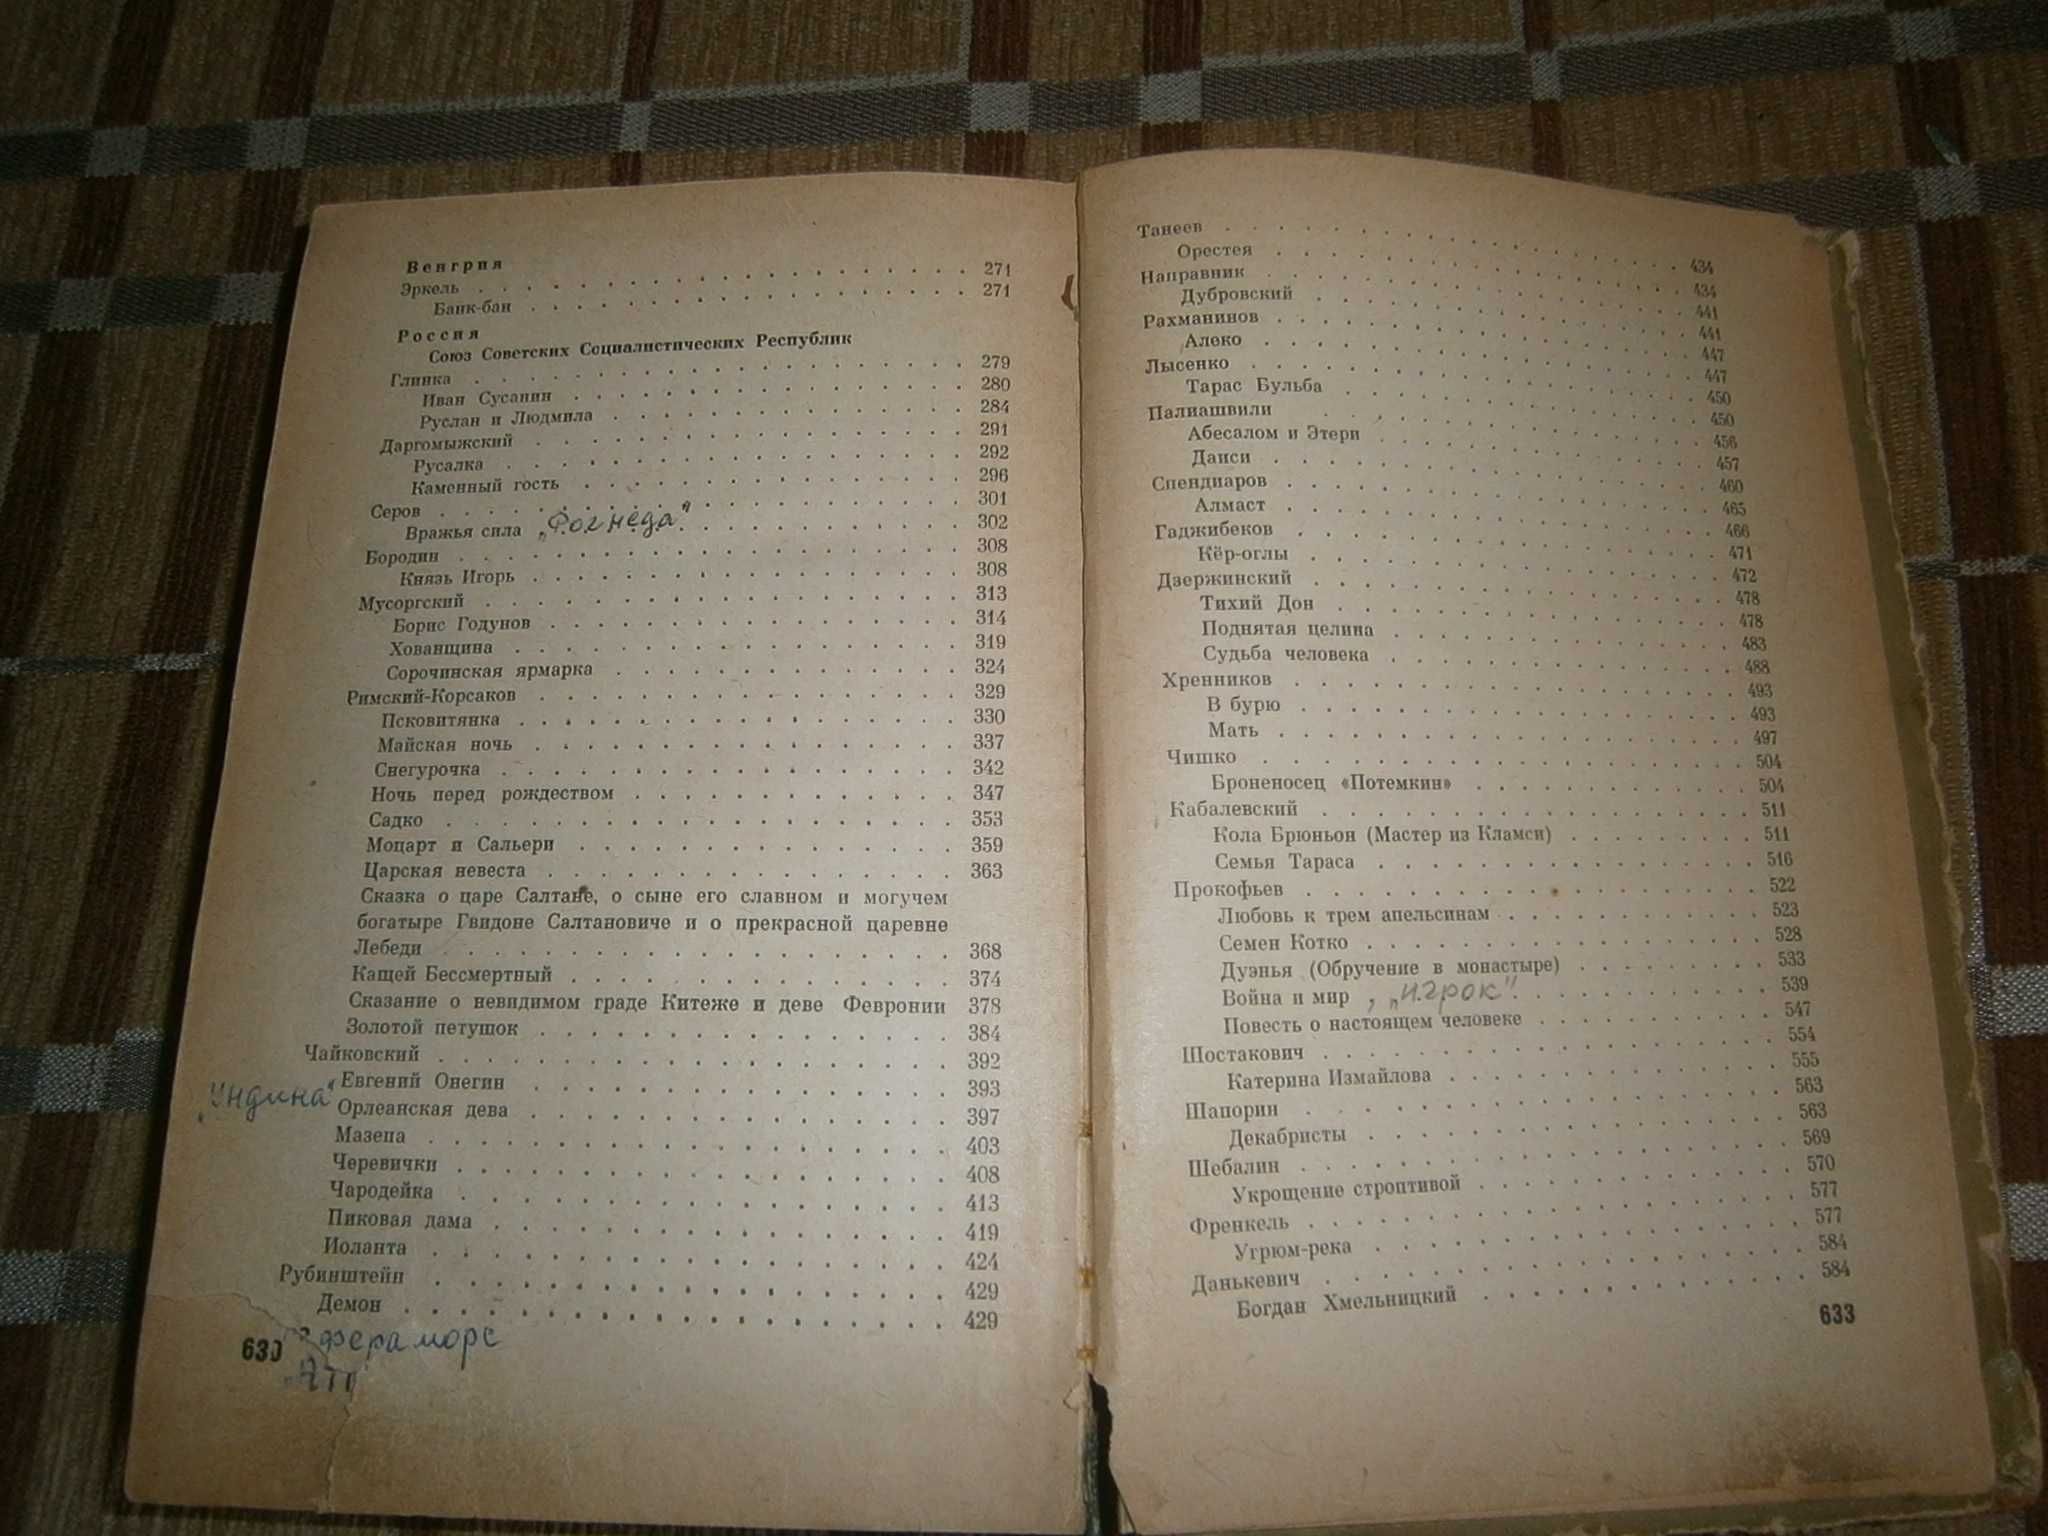 Венгрия
Эркель . . . . . . . . . . 271
Банк-бан . . . . . . . . . . 271
Россия
Союз Советских Социалистических Республик
Глинка . . . . . . . . . . 279
Иван Сусанин . . . . . . . . . . 280
Руслан и Людмила . . . . . . . . . . 284
Даргомыжский . . . . . . . . . . 291
Русалка . . . . . . . . . . 292
Каменный гость . . . . . . . . . . 296
Серов . . . . . . . . . . 301
Вражья сила „Рогнеда" . . . . . . . . . . 302
Бородин . . . . . . . . . . 308
Князь Игорь . . . . . . . . . . 308
Мусоргский . . . . . . . . . . 313
Борис Годунов . . . . . . . . . . 314
Хованщина . . . . . . . . . . 319
Сорочинская ярмарка . . . . . . . . . . 324
Римский-Корсаков . . . . . . . . . . 329
Псковитянка . . . . . . . . . . 330
Майская ночь . . . . . . . . . . 337
Снегурочка . . . . . . . . . . 342
Ночь перед рождеством . . . . . . . . . . 347
Садко . . . . . . . . . . 353
Моцарт и Сальери . . . . . . . . . . 359
Царская невеста . . . . . . . . . . 363
Сказка о царе Салтане, о сыне его славном и могучем
богатыре Гвидоне Салтановиче и о прекрасной царевне
Лебеди . . . . . . . . . . 368
Кащей Бессмертный . . . . . . . . . . 374
Сказание о невидимом граде Китеже и деве Февронии 378
Золотой петушок . . . . . . . . . . 384
Чайковский . . . . . . . . . . 392
Евгений Онегин . . . . . . . . . . 393
„Ундина"
Орлеанская дева . . . . . . . . . . 397
Мазепа . . . . . . . . . . 403
Черевички . . . . . . . . . . 408
Чародейка . . . . . . . . . . 413
Пиковая дама . . . . . . . . . . 419
Иоланта . . . . . . . . . . 424
Рубинштейн . . . . . . . . . . 429
Демон . . . . . . . . . . 429
630 фераморс
Танеев . . . . . . . . . . 434
Орестея . . . . . . . . . . 434
Направник . . . . . . . . . . 441
Дубровский . . . . . . . . . . 441
Рахманинов . . . . . . . . . . 447
Алеко . . . . . . . . . . 447
Лысенко . . . . . . . . . . 450
Тарас Бульба . . . . . . . . . . 450
Палиашвили . . . . . . . . . . 456
Абесалом и Этери . . . . . . . . . . 457
Даиси . . . . . . . . . . 460
Спендиаров . . . . . . . . . . 465
Алмаст . . . . . . . . . . 466
Гаджибеков . . . . . . . . . . 471
Кёр-оглы . . . . . . . . . . 472
Дзержинский . . . . . . . . . . 478
Тихий Дон . . . . . . . . . . 478
Поднятая целина . . . . . . . . . . 483
Судьба человека . . . . . . . . . . 488
Хренников . . . . . . . . . . 493
В бурю . . . . . . . . . . 493
Мать . . . . . . . . . . 497
Чишко . . . . . . . . . . 504
Броненосец «Потемкин» . . . . . . . . . . 504
Кабалевский . . . . . . . . . . 511
Кола Брюньон (Мастер из Кламси) . . . . . . . . 511
Семья Тараса . . . . . . . . . . 516
Прокофьев . . . . . . . . . . 522
Любовь к трем апельсинам . . . . . . . . . . 523
Семен Котко . . . . . . . . . . 528
Дуэнья (Обручение в монастыре) . . . . . . . . 533
Война и мир , „игрок" . . . . . . . . . . 539
Повесть о настоящем человеке . . . . . . . . . . 547
Шостакович . . . . . . . . . . 554
Катерина Измайлова . . . . . . . . . . 555
Шапорин . . . . . . . . . . 563
Декабристы . . . . . . . . . . 563
Шебалин . . . . . . . . . . 569
Укрощение строптивой . . . . . . . . . . 570
Френкель . . . . . . . . . . 577
Угрюм-река . . . . . . . . . . 577
Данькевич . . . . . . . . . . 584
Богдан Хмельницкий . . . . . . . . . . 584
633